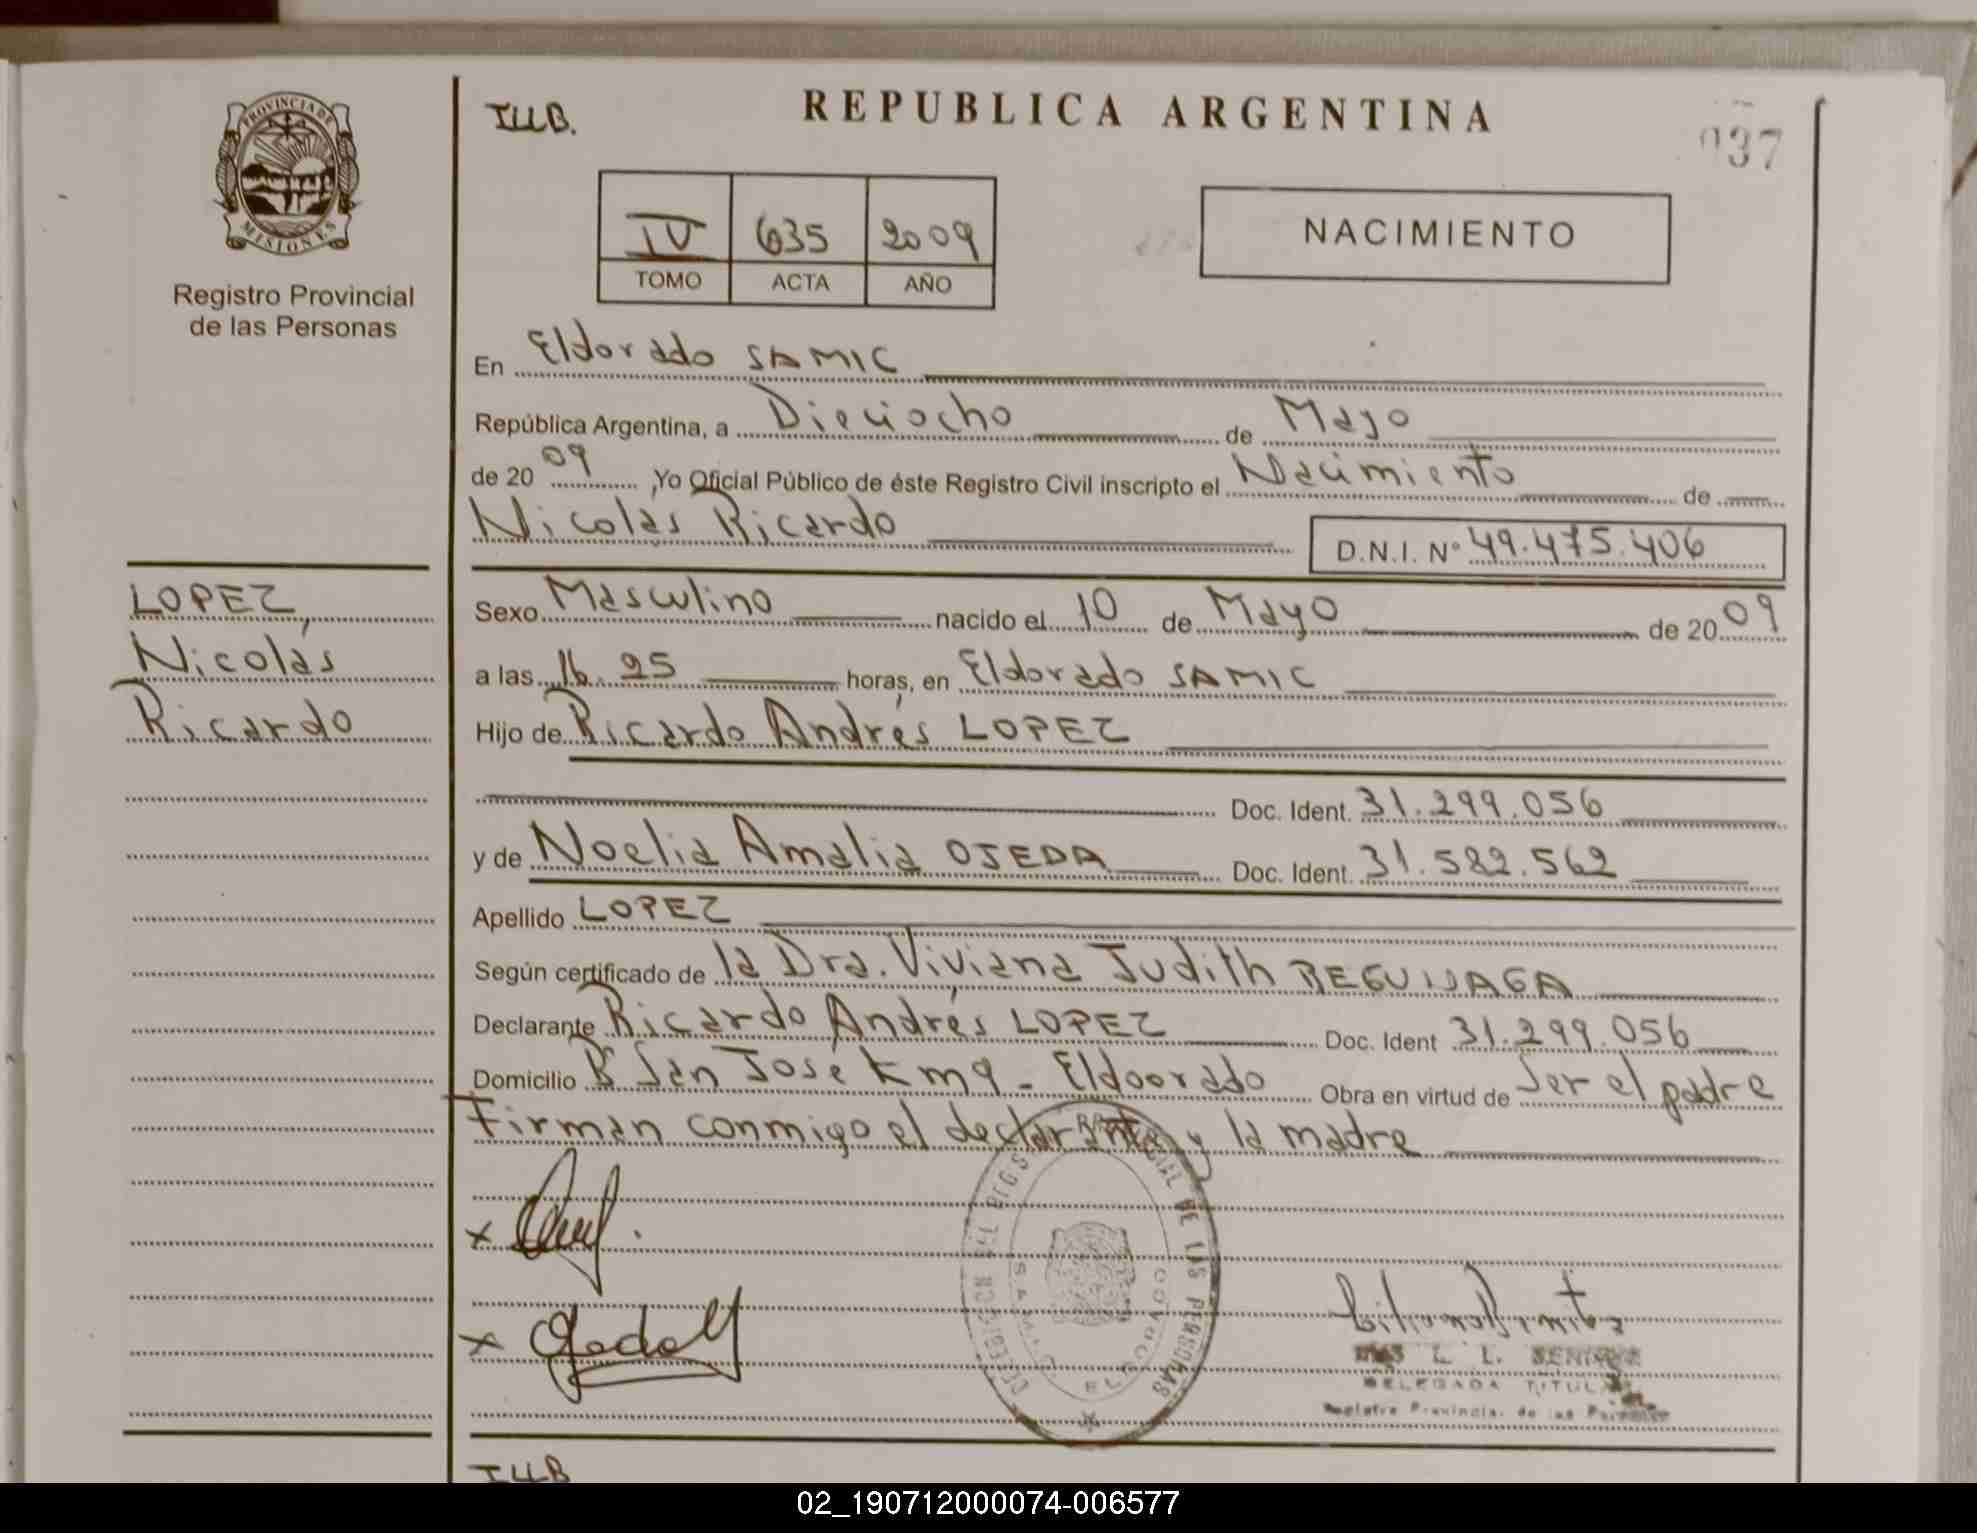 PROVINCIA DE
MISIONES
Registro Provincial
de las Personas
LOPEZ,
Nicolás
Ricardo
ILLB.
REPUBLICA ARGENTINA
037
IV 635 2009
TOMO ACTA AÑO
NACIMIENTO
En Eldorado SAMIC
República Argentina, a Dieciocho de Mayo
de 2009 ,Yo Oficial Público de éste Registro Civil inscripto el Nacimiento de
Nicolás Ricardo D.N.I. Nº 49.475.406
Sexo Masculino nacido el 10 de Mayo de 2009
a las 16.25 horas, en Eldorado SAMIC
Hijo de Ricardo Andrés LOPEZ
Doc. Ident. 31.299.056
y de Noelia Amalia OJEDA Doc. Ident. 31.582.562
Apellido LOPEZ
Según certificado de la Dra. Viviana Judith
Declarante Ricardo Andrés LOPEZ Doc. Ident 31.299.056
Domicilio Bº San José Km 9 - Eldoorado Obra en virtud de Ser el padre
Firman conmigo el declarante y la madre
x
x
DE LAS PERSONAS
S.A.M.I.C.
ELDORADO
L. L.
DELEGADA TITULAR
Registro Provincial de las Personas
ILLB
02_190712000074-006577